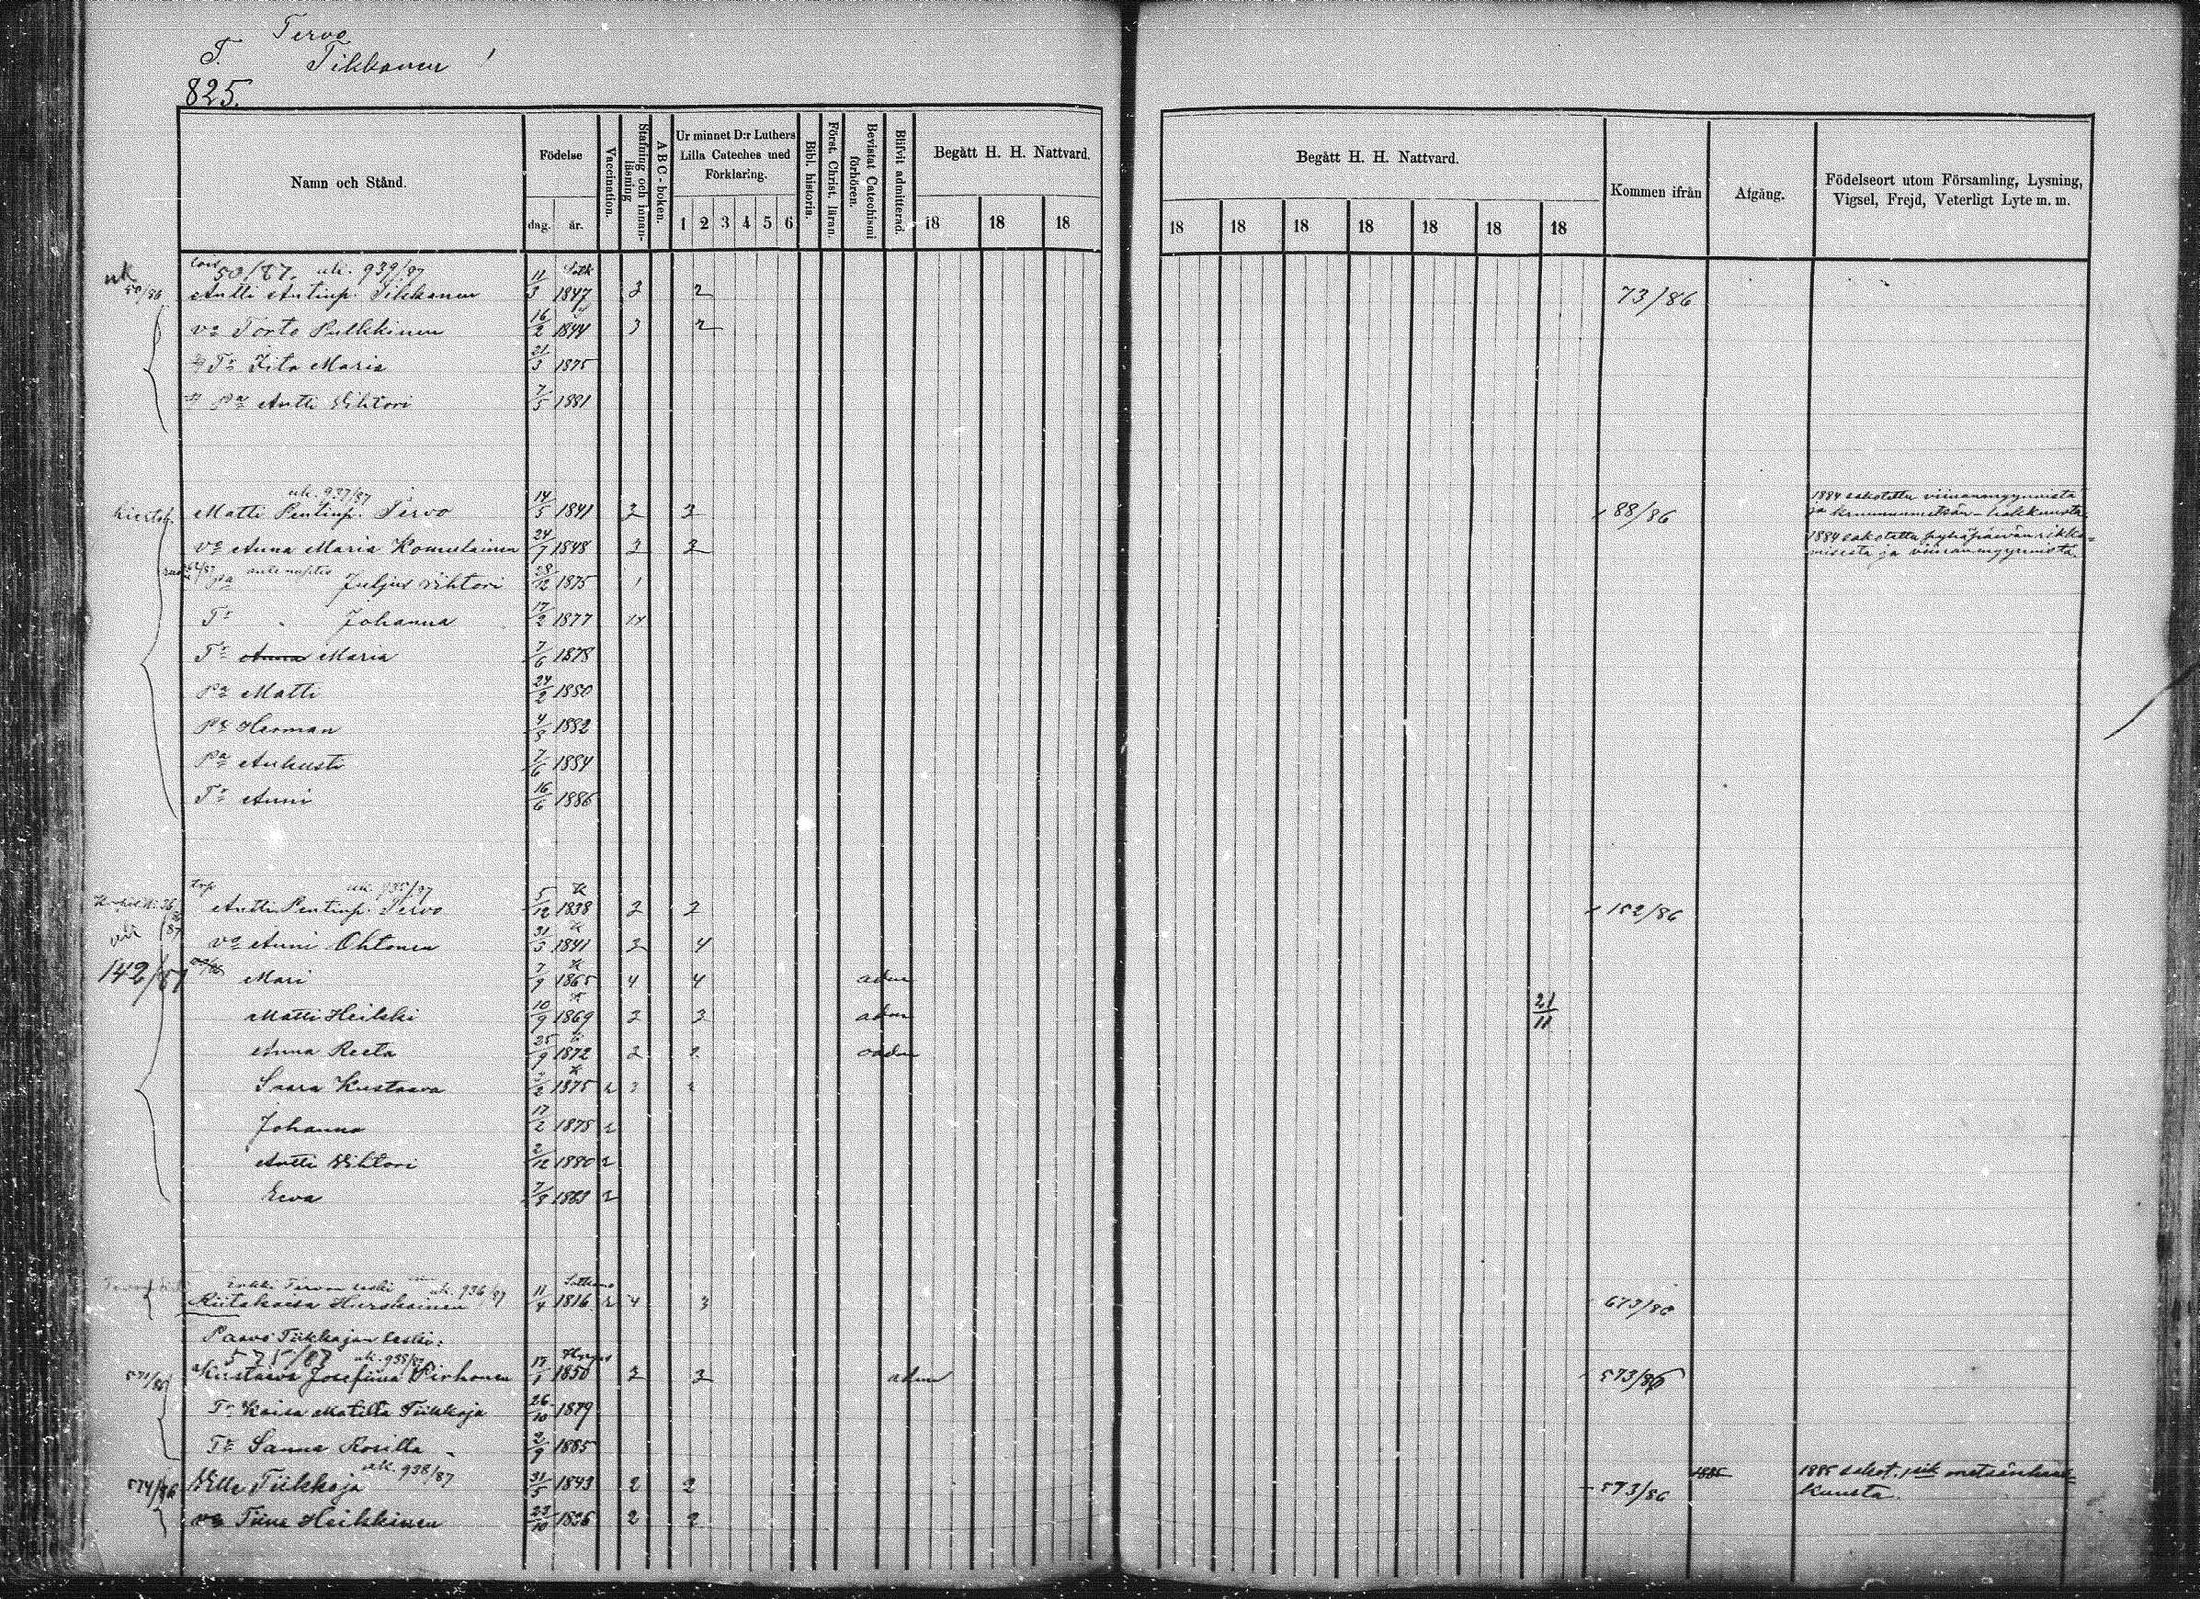 Tervo
T. Tikkanen
825.
Namn och Stånd.
Födelse
dag. år.
Vaccination.
Stafning och innan-läsning
ABC-boken.
Ur minnet D:r Luthers Lilla Cateches med Förklaring.
1 2 3 4 5 6
Bibl. historia.
Först. Christ. läran.
Bevistat Catechismi förhören.
Blifvit admitterad.
Begått H. H. Nattvard.
18 18 18
Begått H. H. Nattvard.
18 18 18 18 18 18 18
Kommen ifrån
Afgång.
Födelseort utom Församling, Lysning, Vigsel, Frejd, Veterligt Lyte m. m.
50/87. uk. 939/87
Antti Antinp. Tikkanen 11/3 1847 3 2 73/86
va Pulkkinen 16/2 1844 3 2
Tr Maria 21/3 1875
Pa Antti Vihtori 7/5 1881
uk. 937/87
Matti Pentinp. Tervo 14/5 1841 2 3 88/86
1884 sakotettu viinanmyynnistä
ja kruununmetsän-hakkuusta
va Anna Maria Komulainen 24/7 1848 3 3
1884 sakotettu pyhäpäivän rikko=
misesta ja viinanmyynnistä.
Pa ante nuptias Juljus Vihtori 28/12 1875 1
Tr Johanna 17/2 1877
Tr Anna Maria 7/6 1878
Pa Matti 24/2 1880
Pa Herman 4/3 1882
Pa Aukusti 7/6 1884
Tr Anni 16/6 1886
Antti Pentinp. Tervo 5/12 1838 2 2 152/86
va Anni Ohtonen 31/3 1841 2 4
142/87 Mari 7/9 1865 4 4 adm
Matti Heikki 10/9 1869 2 3 adm 21/11
Anna Reeta 25/9 1872 2 2 adm
Saara Kustaava 1875
Johanna 17/2 1878
Antti Vihtori 2/12 1880
Eeva 7/8 1883
Tervon leski uk. 936/87
Riitakaisa Hurskainen 11/4 1816 4 3 673/86
Paavo Tiikkajan leski:
575/87 uk. 938/87
Kustaava Josefiina Pirhonen 1850 2 3 adm 573/86
Tr Kaisa Matilta Tiikkaja 26/10 1879
Tr Sanna Rosilla 2/9 1885
uk. 938/87
574/86 Ville Tiikkaja 31/5 1843 2 2 573/86 1885
1885 sakot. metsänhak=
kuusta.
va Tiina Heikkinen 23/10 1836 2 2